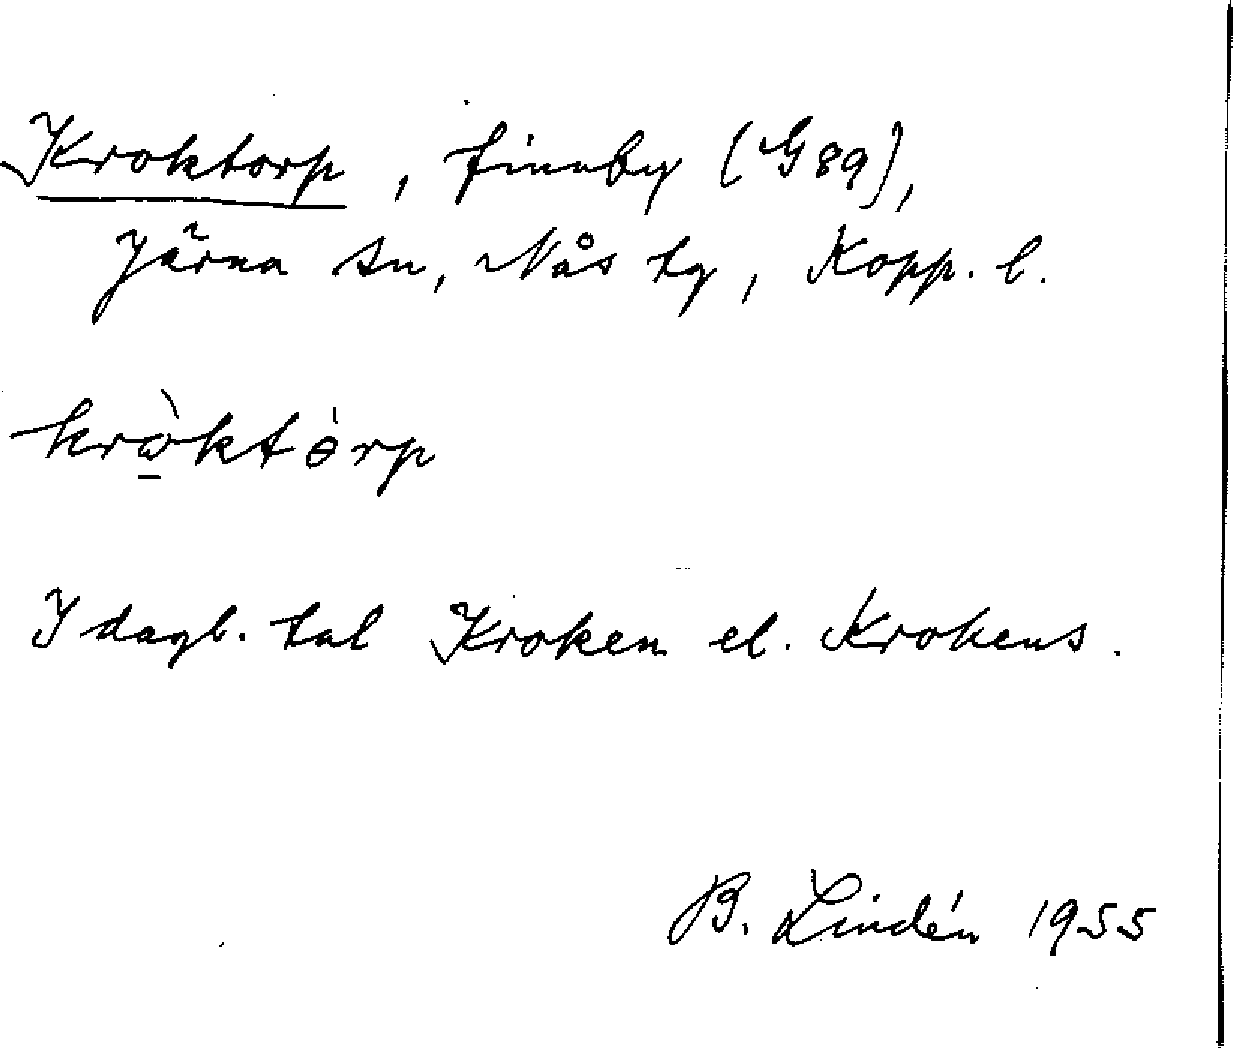 Kroktorp, finnby (G89),
Järna sn, Nås tg, Kopp. l.
krɷ̀ktɵ̀rp
I dagl. tal Kroken el. Krokens.
B. Lindén 1955